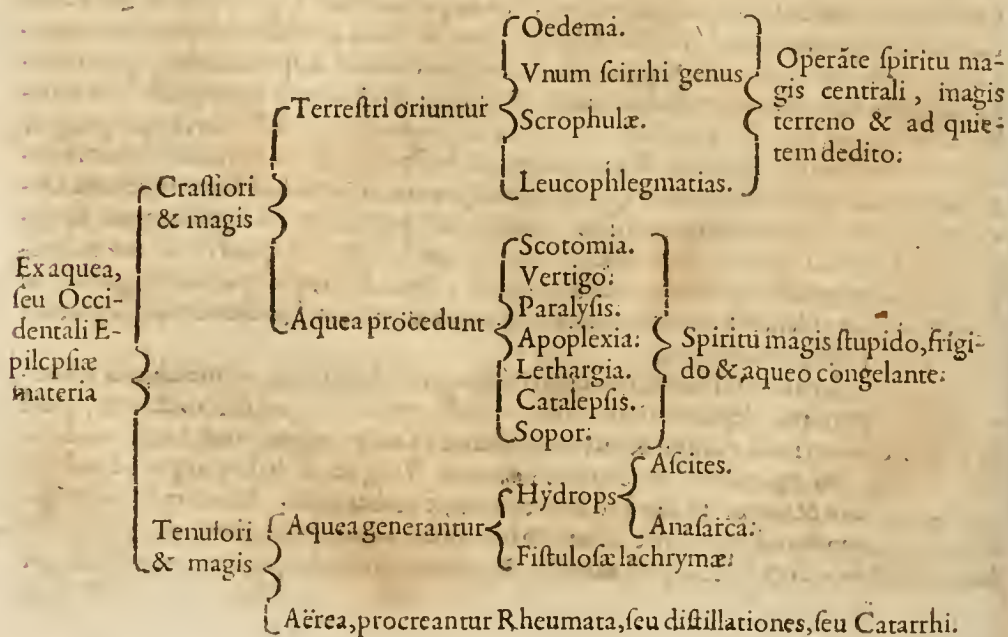 Ex aquea,
ſeu Occi-
dentali E-
pilcpſiæ
materia
Craſſiori
& magis
Terreſtri oriuntur
Oedema.
Vnum ſcirrhi genus
Scrophulæ.
Leucophlegmatias.
Operāte ſpiritu ma-
gis centrali, magis
terreno & ad quie-
tem dedito:
Aquea procedunt
Scotomia.
Vertigo:
Paralyſis.
Apoplexia:
Lethargia.
Catalepſis.
Sopor:
Spiritu magis ſtupido, frigi-
do & aqueo congelante:
Tenuiori
& magis
Aquea generantur
Hydrops
Aſcites.
Anaſarca:
Fiſtuloſæ lachrymæ:
Aërea, procreantur Rheumata, ſeu diſtillationes, ſeu Catarrhi.